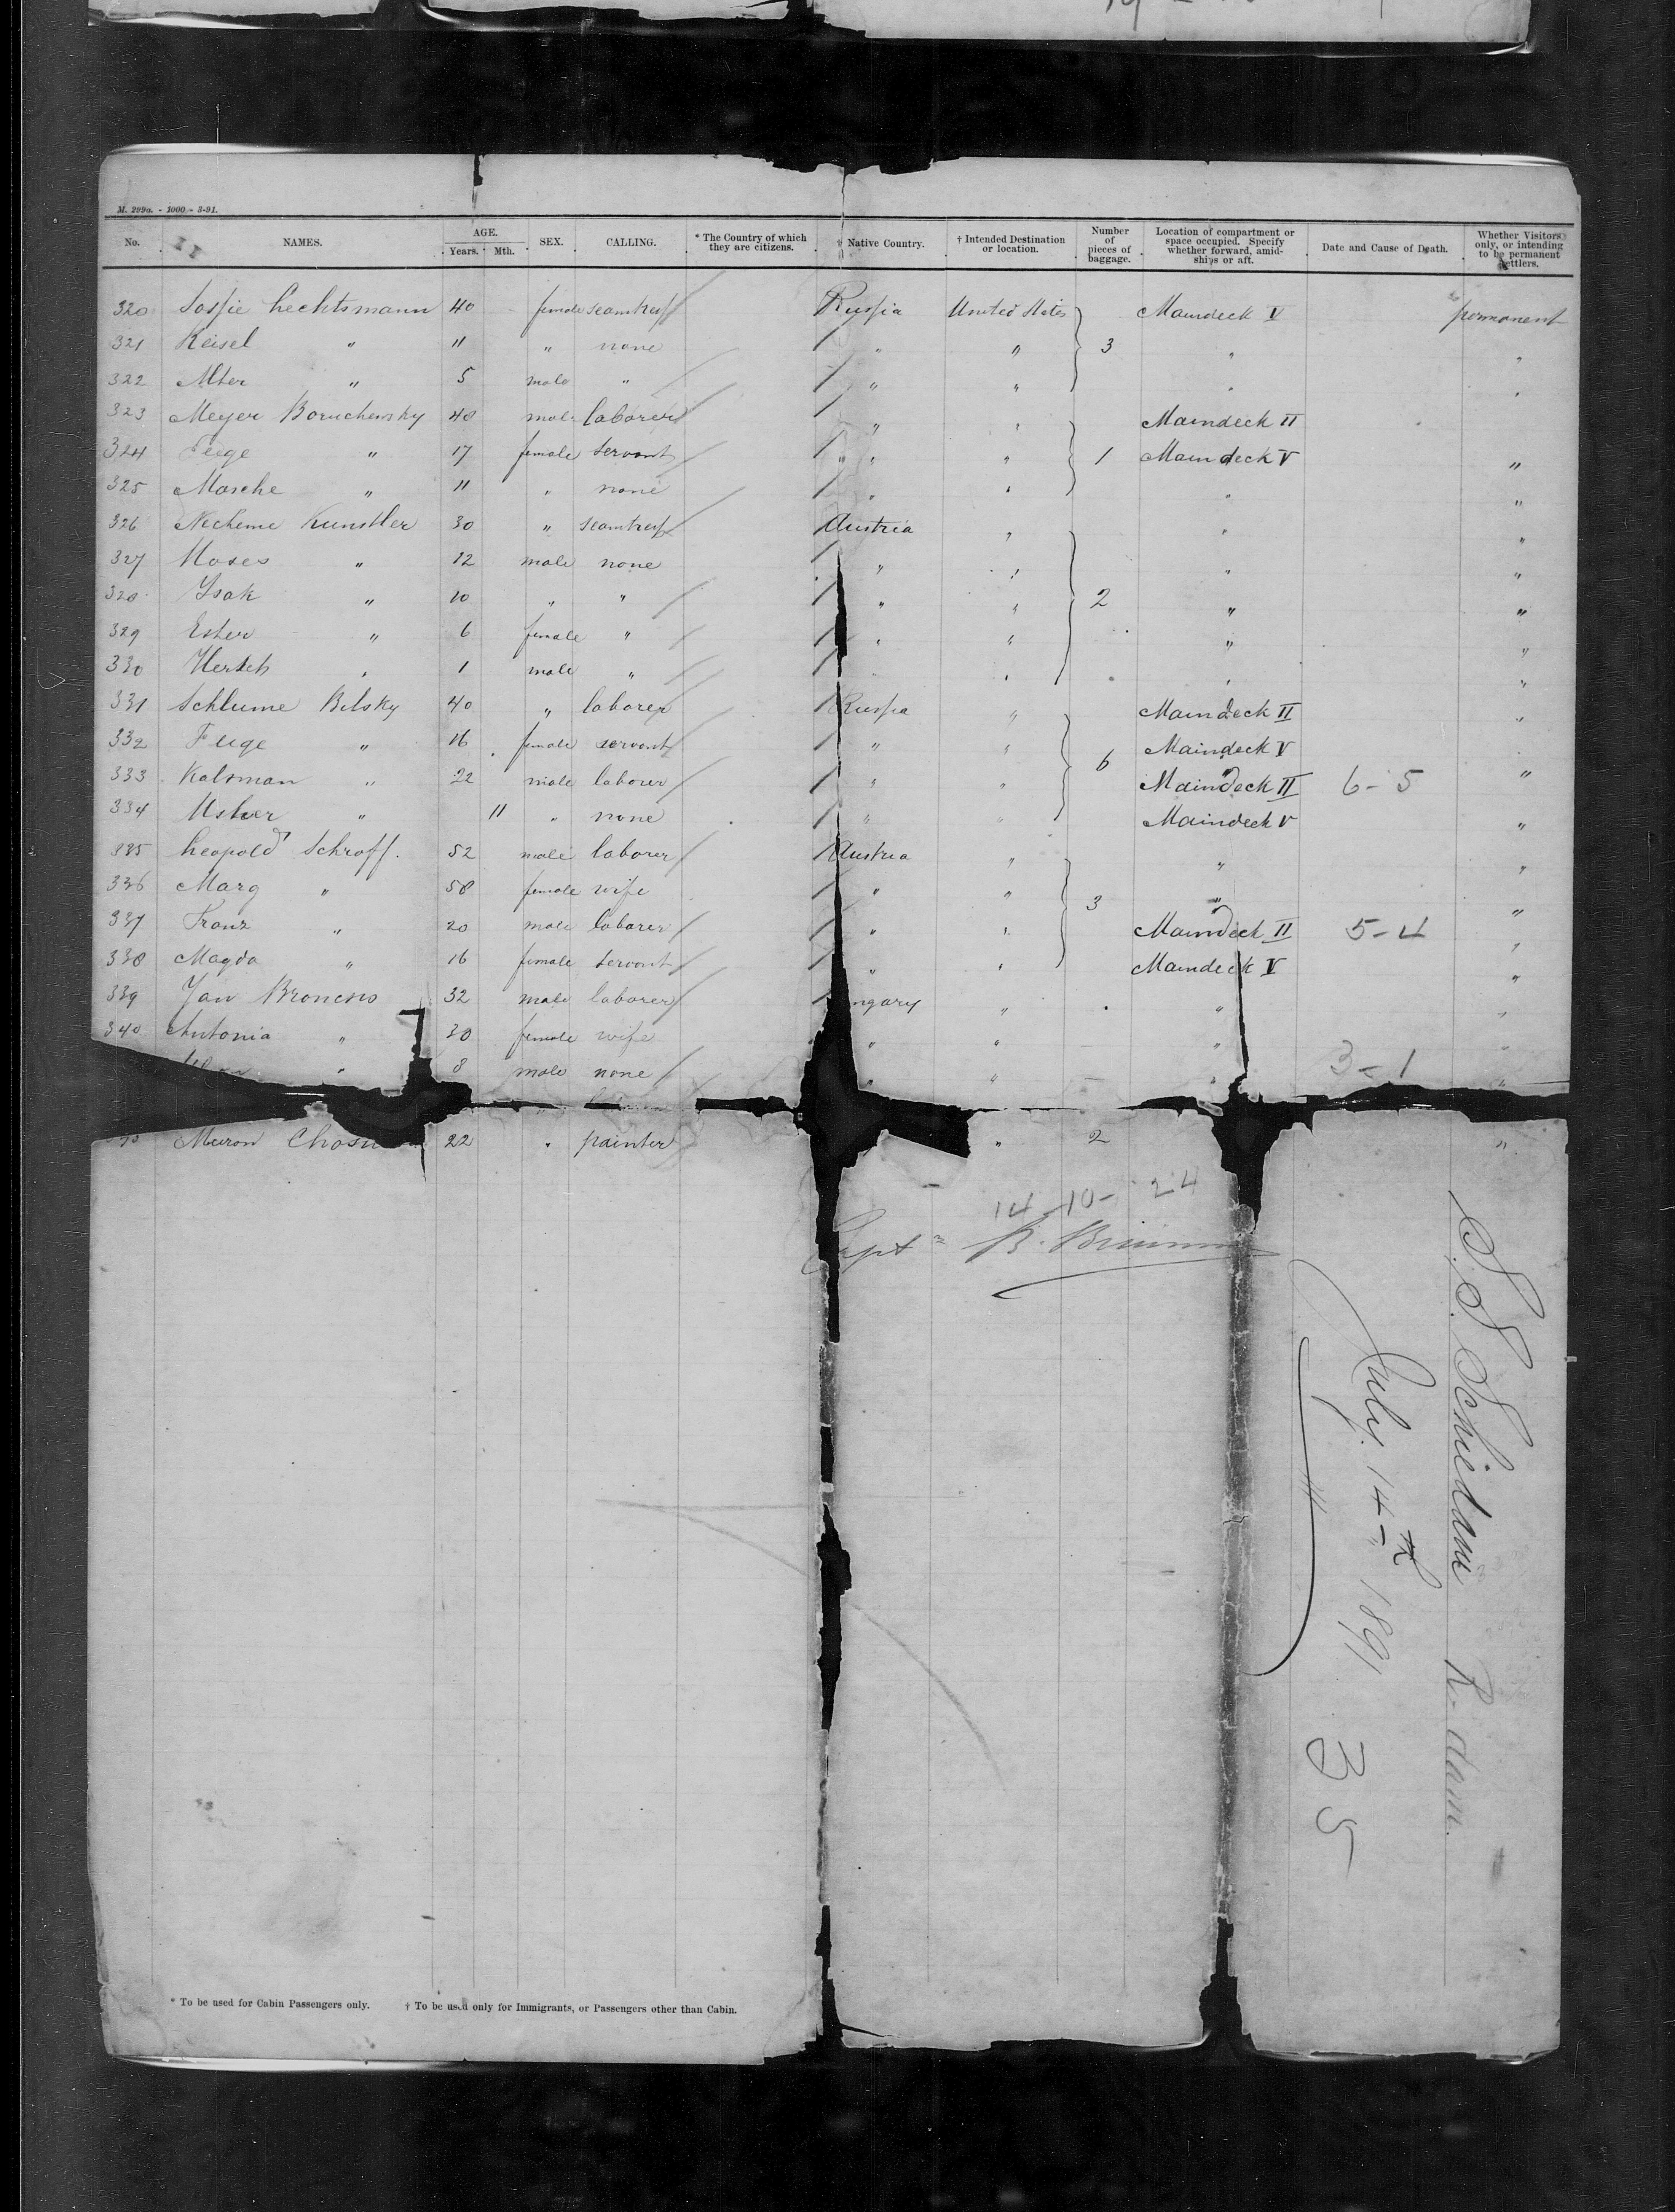 M. 299a. - 1000 - 3-91.
No. NAMES. AGE. Years. Mth. SEX. CALLING. * The Country of which they are citizens. † Native Country. † Intended Destination or location. Number of pieces of baggage. Location of compartment or space occupied. Specify whether forward, amidships or aft. Date and Cause of Death. Whether Visitors only, or intending to be permanent settlers.
320 Sossie Lechtsmann 40 female seamtress Russia United States Maindeck V permanent
321 Reisel " 11 " none " " 3 " "
322 Alter " 5 male " " " " "
323 Meyer Boruchewsky 48 male laborer " " Maindeck II
324 Feige " 17 female servant " " 1 Maindeck V "
325 Mosche " 11 " none " " " "
326 Necheme Kunstler 30 " seamtress Austria " " "
327 Moses " 12 male none " " " "
328 Ysak " 10 " " " " 2 " "
329 Ester " 6 female " " " " "
330 Hersch " 1 male " " " " "
331 Schlume Bilsky 40 " laborer Russia " Maindeck II "
332 Feige " 16 female servant " " 6 Maindeck V "
333 Kalsman " 22 male laborer " " Maindeck II 6-5 "
334 Usher " 11 " none " " Maindeck V "
335 Leopold Schroff. 52 male laborer Austria " " "
336 Marg " 58 female wife " " 3 " "
337 Franz " 20 male laborer " " Maindeck II 5-4 "
338 Magda " 16 female servant " " Maindeck V "
339 Jan 32 male laborer ngary " " "
340 Antonia " 30 female wife " " " "
" 8 male none " " " 3-1 "
Meron 22 " painter " 2 "
14-10-24
Capt B.
S.S. Schiedam R-dam.
July. 14th 1891
35
* To be used for Cabin Passengers only. † To be used only for Immigrants, or Passengers other than Cabin.